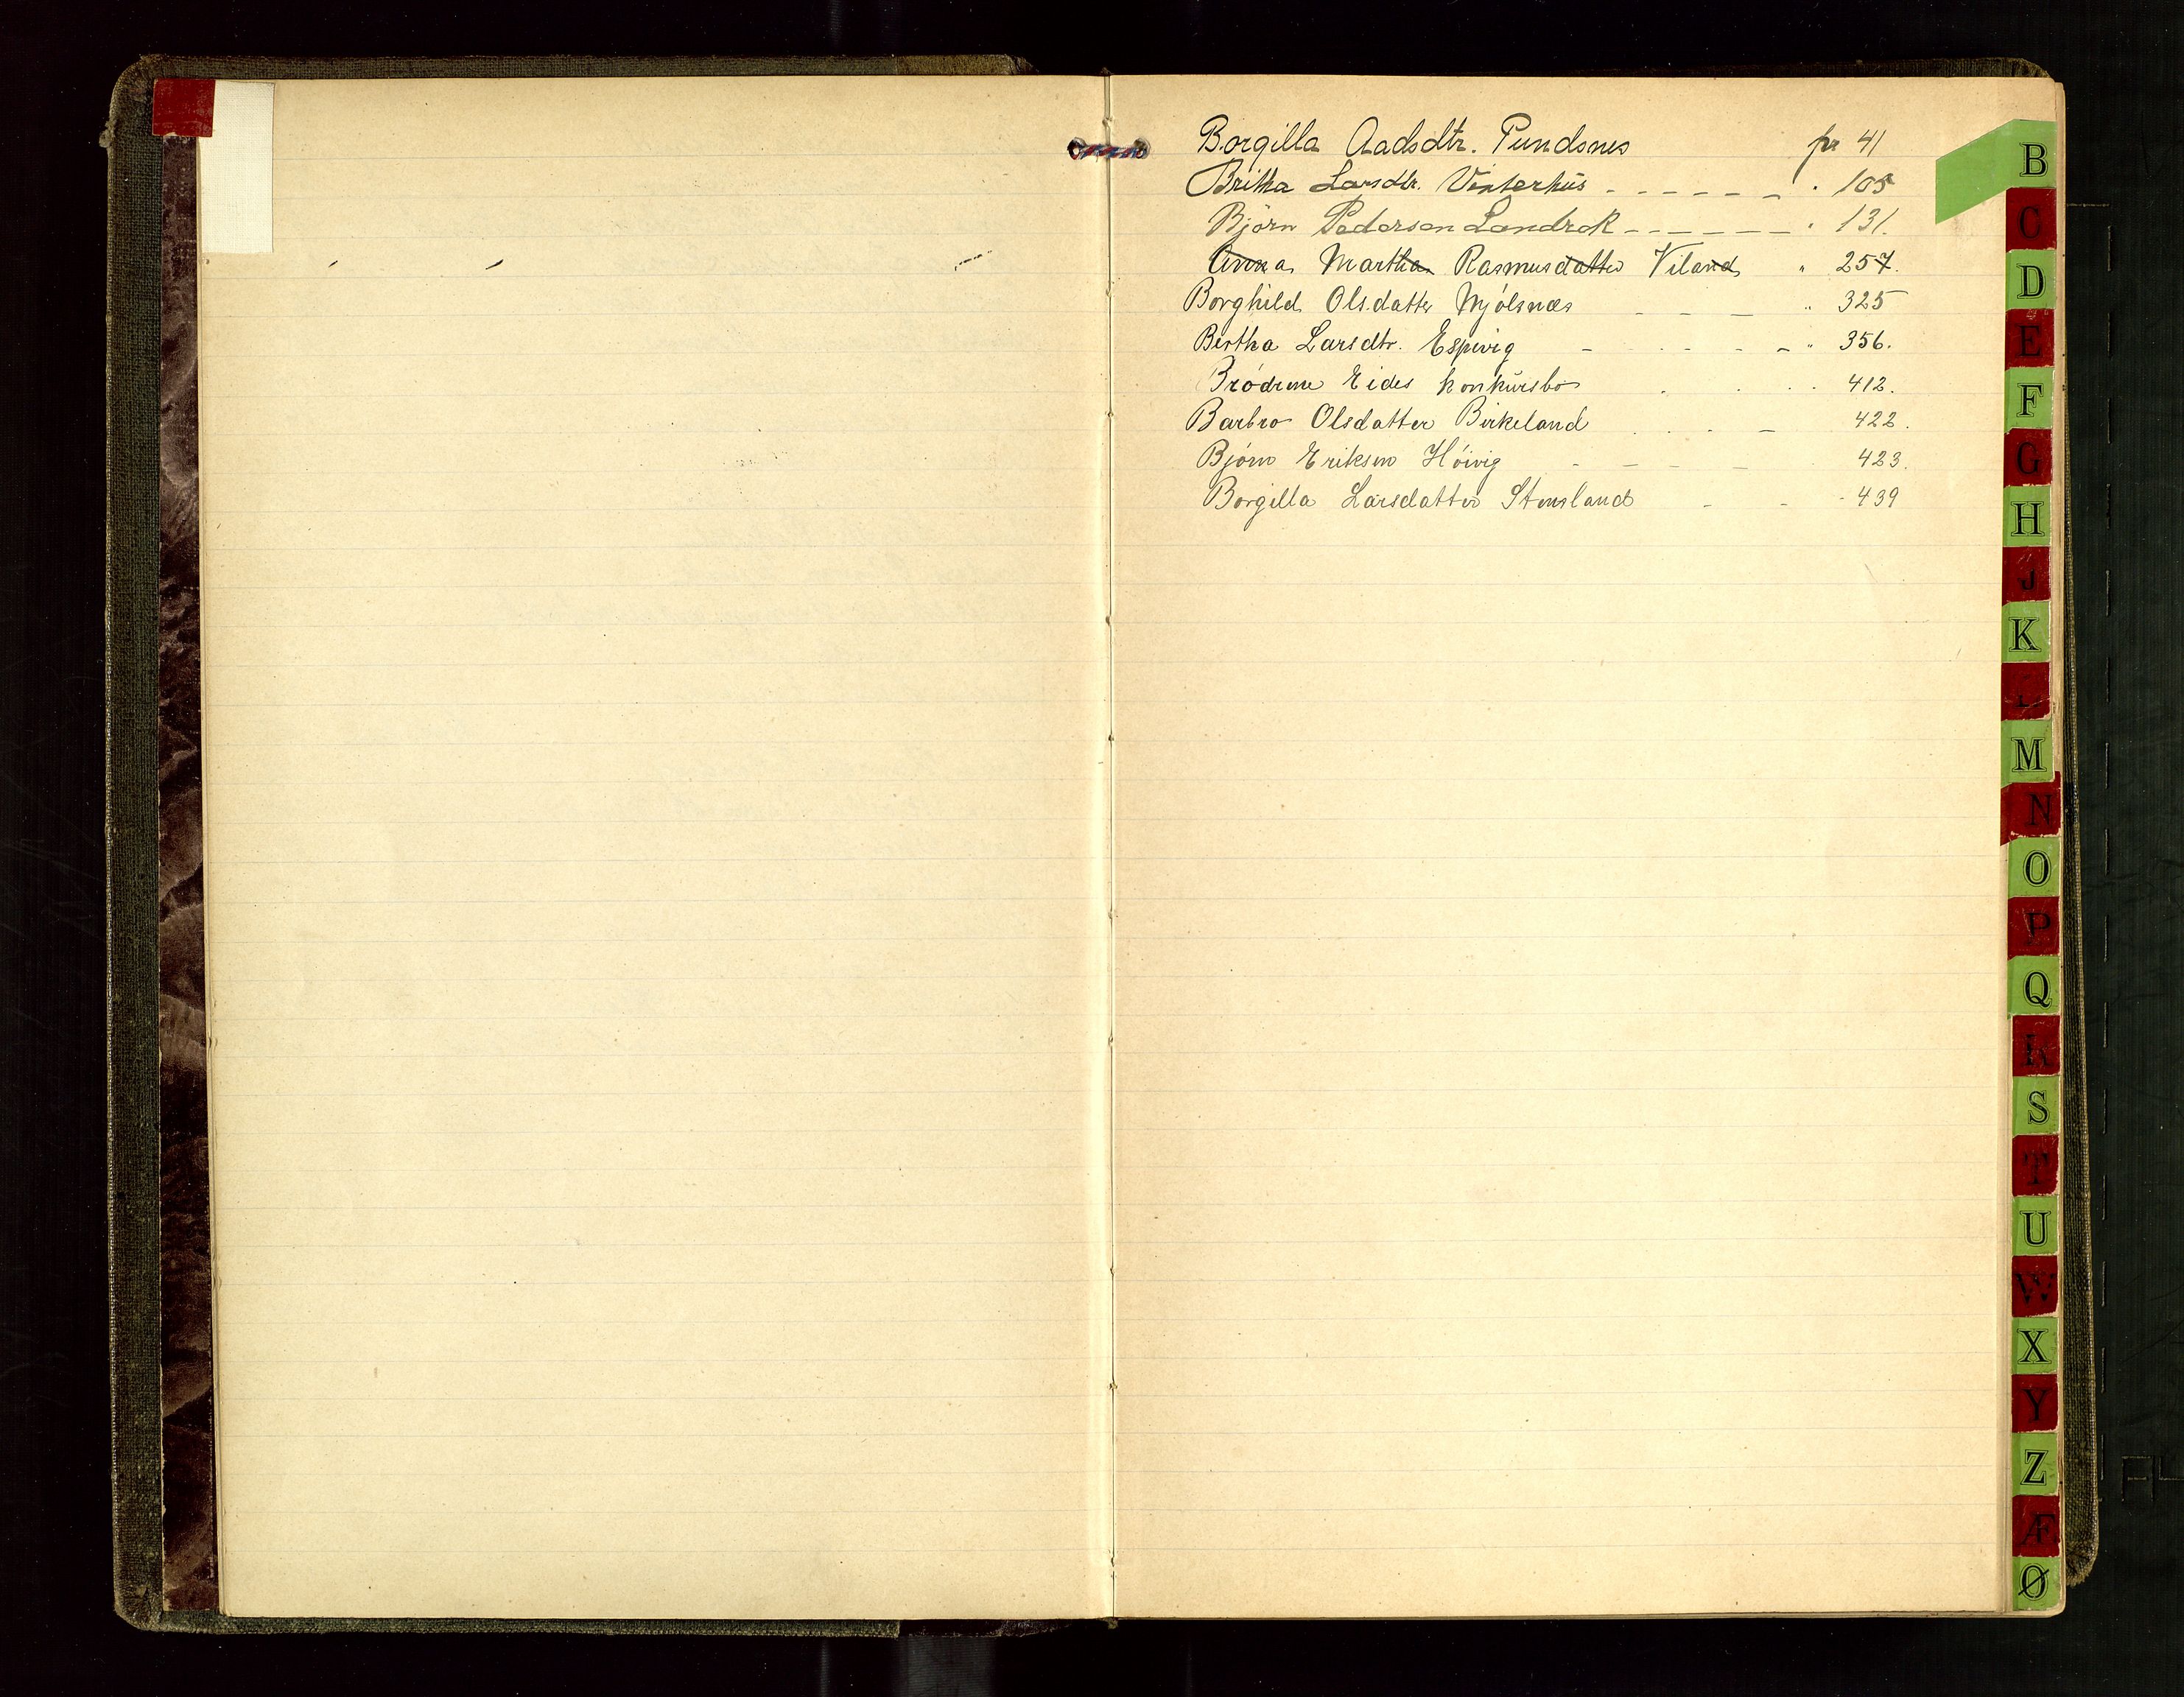 Borgilla Aadsdtr. Pundsnes pr 41
Britha Larsdtr. Vinterhus - - - - - - " 105
Björn Pedersen Landrok - - - - - - - " 131.
Anna Martha Rasmusdatter Viland " 257.
Borghild Olsdatter Mjölsnæs - - - " 325
Bertha Larsdtr. Espevig - - - - - " 356.
Brödrene Eides konkursbo . . . . 412.
Barbro Olsdatter Birkeland . . . - 422.
Bjørn Eriksen Höivig - - - - 423.
Borgilla Larsdatter Stensland - - - 439
B
C
D
E
F
G
H
J
K
L
M
N
O
P
Q
R
S
T
U
W
X
Y
Z
Æ
Ø